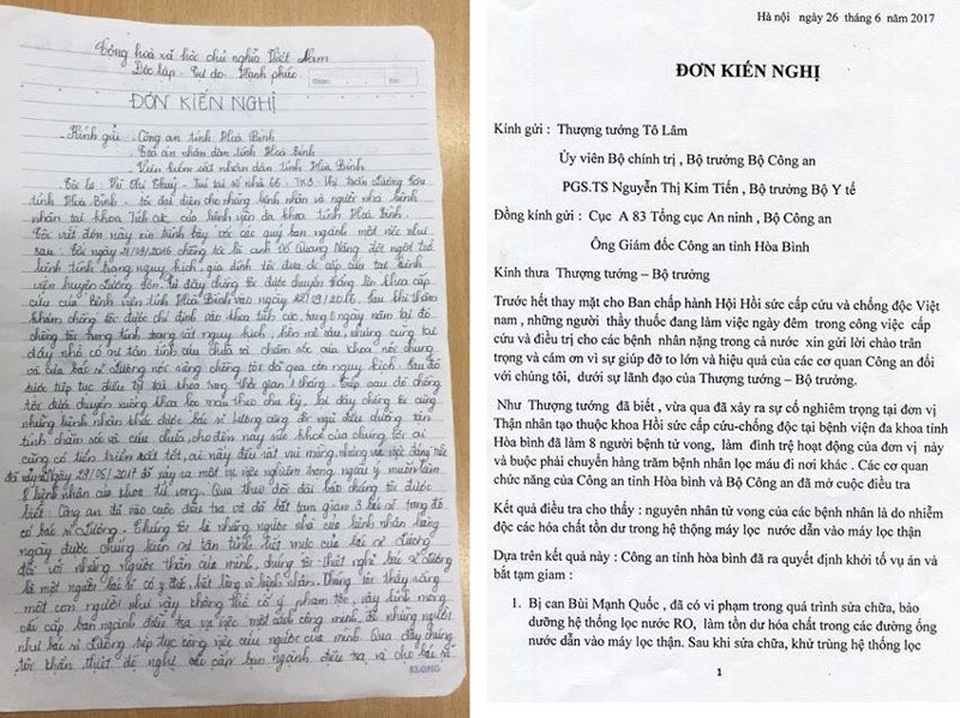 Cộng hoà xã hội chủ nghĩa Việt Nam
Độc lập - Tự do - Hạnh phúc.
ĐƠN KIẾN NGHỊ
Kính gửi : Công an tỉnh Hoà Bình
- Toà án nhân dân tỉnh Hoà Bình
- Viện kiểm sát nhân dân tỉnh Hoà Bình
Tôi là : Thuỷ - Trú tại số nhà 66 - TK3 - Thị trấn Lương Sơn
tỉnh Hoà Bình - tôi đại diện cho những bệnh nhân và người nhà bệnh
nhân tại khoa Tích cực của bệnh viện đa khoa tỉnh Hoà Bình.
Tôi viết đơn này xin trình bày với các quý ban ngành một việc như
sau : chồng tôi là anh Đỗ Quang Năng đột ngột trở
bệnh tình trạng nguy kịch, gia đình tôi đưa đi cấp cứu tại Bệnh
viện huyện Lương Sơn. Từ đây chồng tôi được chuyển thẳng lên khoa cấp
cứu của Bệnh viện tỉnh Hoà Bình vào ngày 22/09/2016, sau khi thăm
khám chồng tôi được chỉ định vào khoa tích cực, trong 5 ngày nằm tại đó
chồng tôi trong tình trạng rất nguy kịch, hôn mê sâu, nhưng cũng tại
đây nhờ có sự tận tình cứu chữa và chăm sóc của khoa nói chung
và của bác sĩ Lương nói riêng chồng tôi đã qua cơn nguy kịch. Sau đó
được tiếp tục điều trị tại khoa trong thời gian 1 tháng. Tiếp sau đó chồng
tôi được chuyển xuống khoa lọc máu theo chu kỳ, tại đây chồng tôi cùng
những bệnh nhân khác được bác sĩ Lương cùng đội ngũ điều dưỡng tận
tình chăm sóc và cứu chữa, cho đến nay sức khoẻ của chúng tôi ai
cũng có tiến triển rất tốt, ai nấy đều rất vui mừng, nhưng
đã xảy ra Ngày 29/05/2017 đã xảy ra một vụ việc nghiêm trọng ngoài ý muốn làm
8 bệnh nhân của khoa tử vong. Qua theo dõi đài báo chúng tôi được
biết : Công an đã vào cuộc điều tra và đã bắt tạm giam 3 bác sĩ trong đó
có bác sĩ Lương. Chúng tôi là những người nhà của bệnh nhân hàng
ngày được chứng kiến sự tận tình hết mực của bác sĩ Lương
đối với những người thân của mình, chúng tôi thiết nghĩ bác sĩ Lương
là một người bác sĩ có y đức, hết lòng vì bệnh nhân. Chúng tôi thấy rằng
một con người như vậy không thể cố ý phạm tội, vậy kính mong
các cấp ban ngành điều tra vụ việc một cách công minh để những người
như bác sĩ Lương tiếp tục công việc cứu người của mình. Qua đây chúng
tôi khẩn thiết đề nghị các cấp ban ngành điều tra và cho bác sĩ
KLONG
Hà nội ngày 26 tháng 6 năm 2017
ĐƠN KIẾN NGHỊ
Kính gửi : Thượng tướng Tô Lâm
Ủy viên Bộ chính trị , Bộ trưởng Bộ Công an
PGS.TS Nguyễn Thị Kim Tiến , Bộ trưởng Bộ Y tế
Đồng kính gửi : Cục A 83 Tổng cục An ninh , Bộ Công an
Ông Giám đốc Công an tỉnh Hòa Bình
Kính thưa Thượng tướng – Bộ trưởng
Trước hết thay mặt cho Ban chấp hành Hội Hồi sức cấp cứu và chống độc Việt
nam , những người thầy thuốc đang làm việc ngày đêm trong công việc cấp
cứu và điều trị cho các bệnh nhân nặng trong cả nước xin gửi lời chào trân
trọng và cám ơn vì sự giúp đỡ to lớn và hiệu quả của các cơ quan Công an đối
với chúng tôi, dưới sự lãnh đạo của Thượng tướng – Bộ trưởng.
Như Thượng tướng đã biết , vừa qua đã xảy ra sự cố nghiêm trọng tại đơn vị
Thận nhân tạo thuộc khoa Hồi sức cấp cứu-chống độc tại bệnh viện đa khoa tỉnh
Hòa bình đã làm 8 người bệnh tử vong, làm đình trệ hoạt động của đơn vị này
và buộc phải chuyển hàng trăm bệnh nhân lọc máu đi nơi khác . Các cơ quan
chức năng của Công an tỉnh Hòa bình và Bộ Công an đã mở cuộc điều tra
Kết quả điều tra cho thấy : nguyên nhân tử vong của các bệnh nhân là do nhiễm
độc các hóa chất tồn dư trong hệ thộng máy lọc nước dẫn vào máy lọc thận
Dựa trên kết quả này : Công an tỉnh hòa bình đã ra quyết định khởi tố vụ án và
bắt tạm giam :
1. Bị can Bùi Mạnh Quốc , đã có vi phạm trong quá trình sửa chữa, bảo
dưỡng hệ thống lọc nước RO, làm tồn dư hóa chất trong các đường ống
nước dẫn vào máy lọc thận. Sau khi sửa chữa, khử trùng hệ thống lọc
1